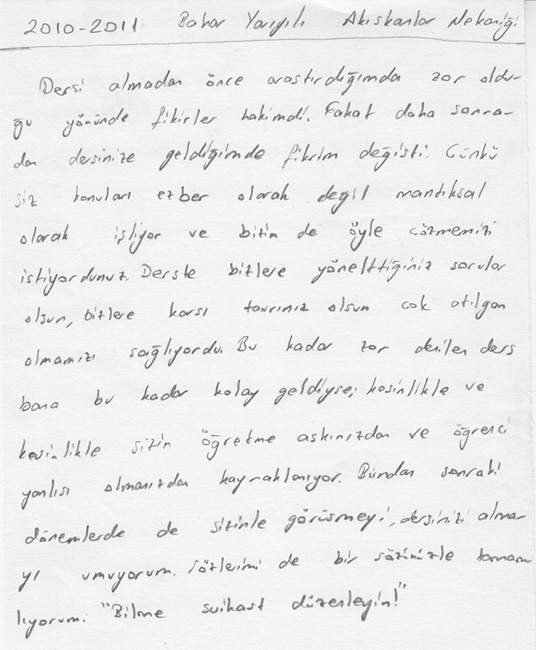 2010-2011 Bahar Yarıyılı Akışkanlar Mekaniği
Dersi almadan önce araştırdığımda zor oldu-
ğu yönünde fikirler hakimdi. Fakat daha sonra-
dan dersinize geldiğimde fikrim değişti. Çünkü
siz konuları ezber olarak değil mantıksal
olarak işliyor ve bizim de öyle çözmemizi
istiyordunuz. Derste bizlere yönelttiğiniz sorular
olsun, bizlere karşı tavrınız olsun çok atılgan
olmamızı sağlıyordu. Bu kadar zor denilen ders
bana bu kadar kolay geldiyse; kesinlikle ve
kesinlikle sizin öğretme aşkınızdan ve öğrenci
yanlısı olmanızdan kaynaklanıyor. Bundan sonraki
dönemlerde de sizinle görüşmeyi, dersinizi alma-
yı umuyorum. Sözlerimi de bir sözünüzle tamam-
lıyorum. "Bilime suikast düzenleyin!"